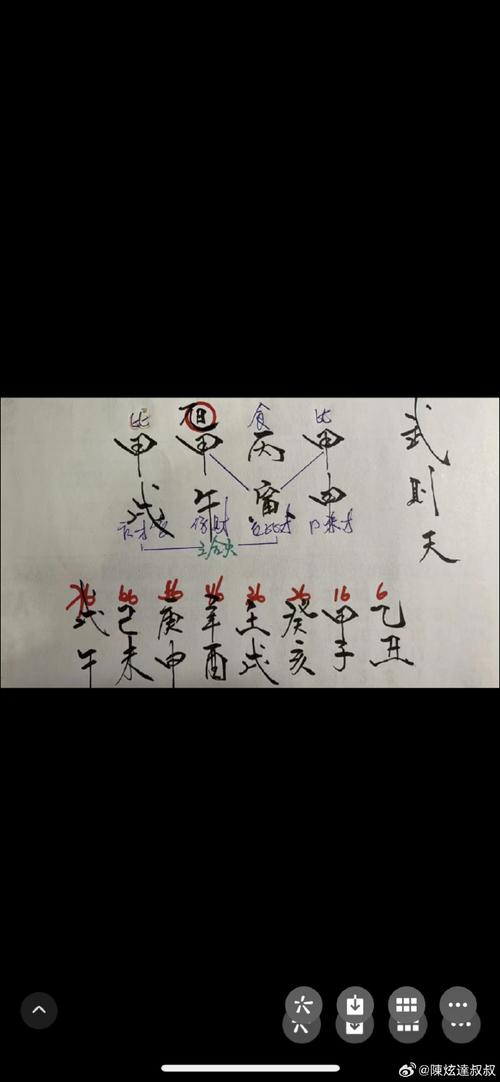 武则天
比 食 比
甲 甲 丙 甲
戌 午 寅 申
三合火
76 66 56 46 36 26 16 6
戊 己 庚 辛 壬 癸 甲 乙
午 未 申 酉 戌 亥 子 丑
@陳炫達叔叔